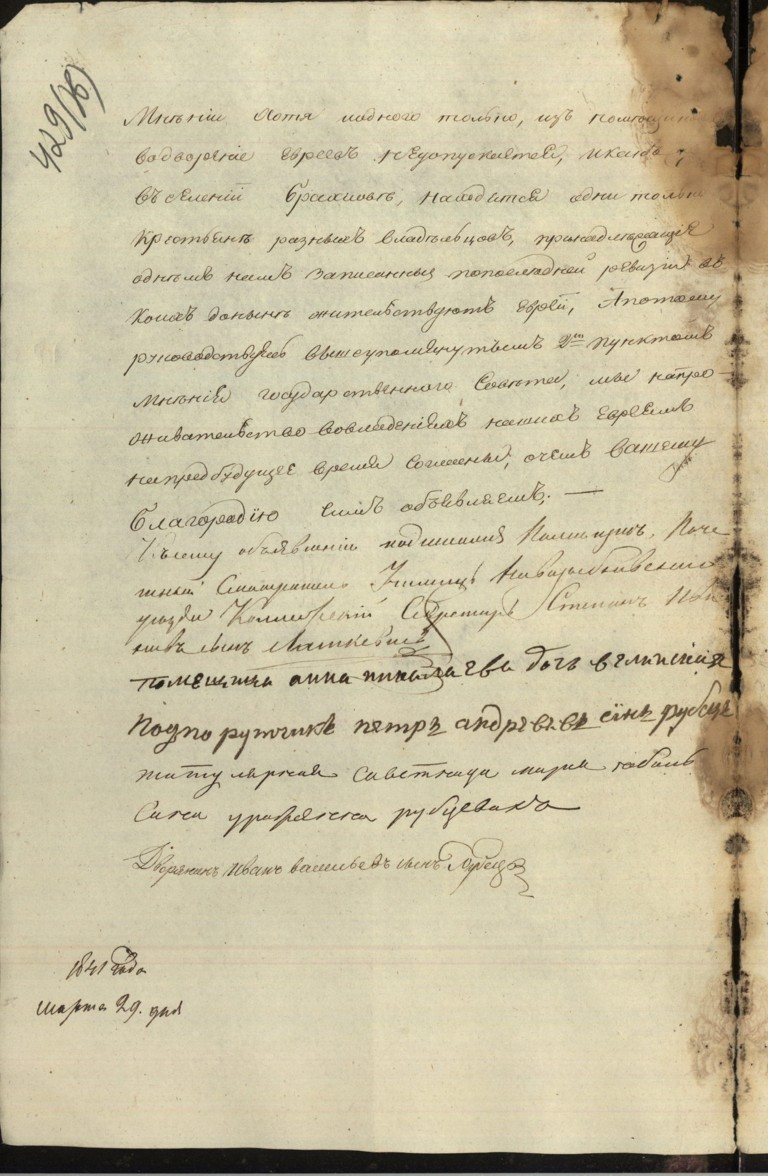 429(26)
Мнѣнія хотя иодного только, изъ помѣщик
водвореніе Евреевъ недопускается, и какъ
въ селеніи Брахловѣ, находятся одни только
Крестьяне разныхъ владѣльцовъ, принадлежащіе
однѣмъ намъ записанныя попослѣдней ревизіи въ
коихъ донынѣ жительствуютъ Евреи, Апотому
руководствуясь вышеупомянутымъ 2мъ пунктомъ
мнѣнія государственнаго Совѣта, мы напро-
живательство вовладѣніяхъ нашихъ Евреямъ
напредбудущее время согласны, очемъ вашему
Благородію симъ объявляемъ. —
Къ сему объявленію подписался Помѣщикъ, Поче
тный Смотритель Училищъ Новозыбковскаго
уѣзда Коллежскій Секретарь Степанъ
сынъ Лашкевичъ
помещица анна николаева дочь
подпоручикъ петръ андрѣевъ синъ рубецъ
титулярная саветница марья
рубцева
Дворянинъ Иванъ васильевъ сынъ Рубецъ
1841 года
марта 29. дня